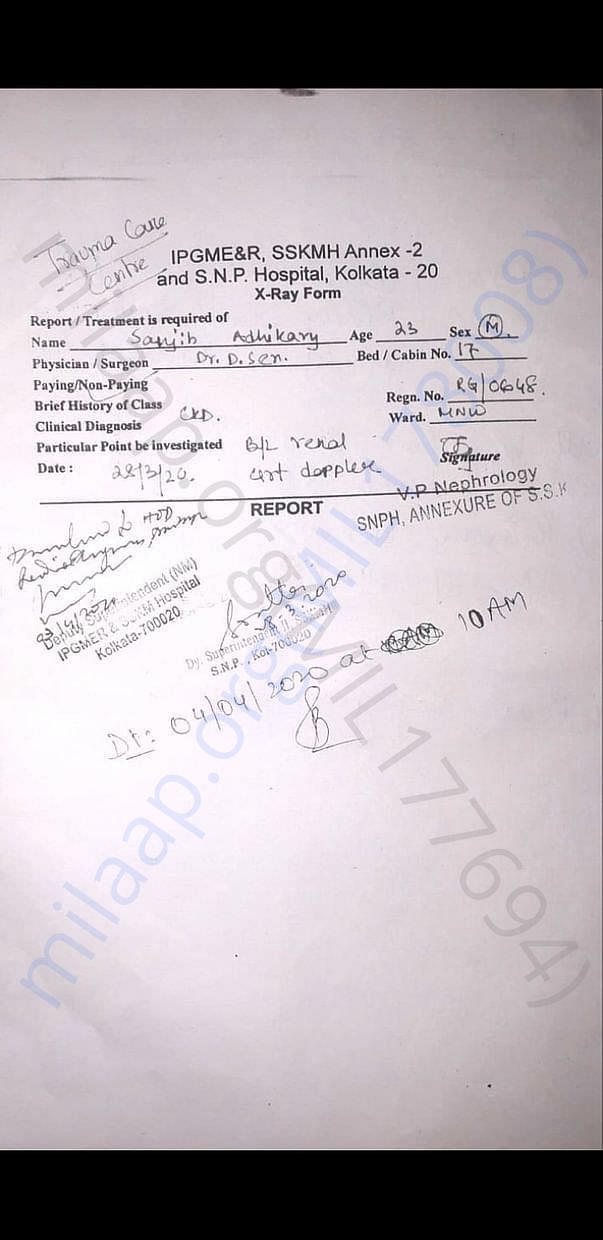 Trauma Care
Centre
IPGME&R, SSKMH Annex -2
and S.N.P. Hospital, Kolkata - 20
X-Ray Form
Report / Treatment is required of
Name Sanjib Adhikary Age 23 Sex M.
Physician / Surgeon Dr. D. Sen. Bed / Cabin No. 17
Paying/Non-Paying
Regn. No. RG/0648.
Brief History of Class CKD.
Ward. MNW
Clinical Diagnosis
Particular Point be investigated B/L renal
Signature
Date : 28/3/20. art doppler
V.P Nephrology
REPORT
SNPH, ANNEXURE OF S.S.K
HOD
Deputy Superintendent (NM)
IPGMER & SSKM Hospital
Kolkata-700020
Dy. Superintendent
S.N.P. , Kol-700020
Dt: 04/04/2020 at 10 AM
milaap.org(MIL178008)
milaap.org(MIL177694)